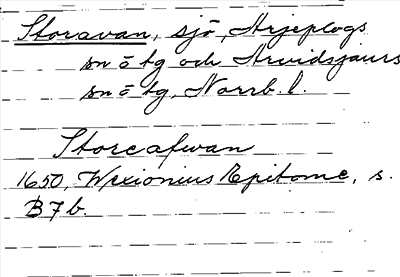 Storavan, sjö, Arjeplogs
sn o tg och Arvidsjaurs
sn o tg, Norrb. l.
Storeafwan
1650, Wexionius Epitome, s.
B7b.